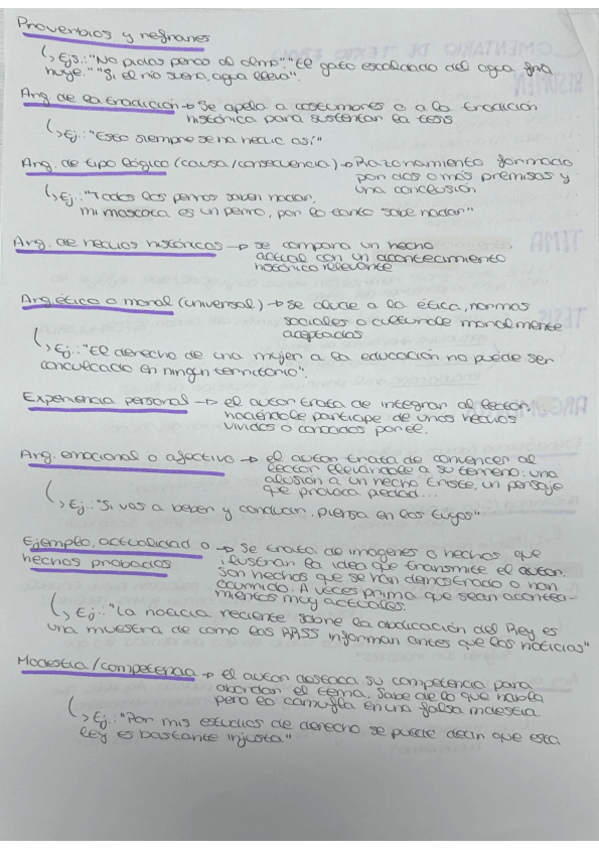 Proverbios y refranes
↳ Ejs: "No pidas peras al olmo" "El gato escaldado del agua fría
huye." "Si el río suena, agua lleva".
Arg. de la tradición → Se apela a costumbres o a la tradición
histórica para sustentar la tesis
↳ Ej: "Esto siempre se ha hecho así"
Arg. de tipo lógico (causa/consecuencia) → Razonamiento formado
por dos o más premisas y
una conclusión
↳ Ej: "Todos los perros saben nadar,
mi mascota es un perro, por lo tanto sabe nadar"
Arg. de hechos históricos → se compara un hecho
actual con un acontecimiento
histórico relevante
Arg. ético o moral (universal) → Se alude a la ética, normas
sociales o culturale moralmente
aceptadas
↳ Ej: "El derecho de una mujer a la educación no puede ser
conculcado en ningún territorio".
Experiencia personal → el autor trata de integrar al lector,
haciéndole partícipe de unos hechos
vividos o conocidos por el.
Arg. emocional o afectivo → el autor trata de convencer al
lector llevándole a su terreno: una
alusión a un hecho triste, un personaje
que provoca piedad...
↳ Ej: "Si vas a beber y conducir, piensa en los tuyos"
Ejemplo, actualidad o → Se trata de imagenes o hechos, que
hechos probados ilustran la idea que transmite el autor.
Son hechos que se han demostrado o han
ocurrido. A veces prima que sean aconteci-
mientos muy actuales.
↳ Ej: "La noticia reciente sobre la abdicación del Rey es
una muestra de como las RRSS informan antes que las noticias"
Modestia/competencia → el autor destaca su competencia para
abordar el tema. Sabe de lo que habla
pero lo camufla en una falsa modestia.
↳ Ej: "Por mis estudios de derecho se puede decir que esta
ley es bastante injusta"